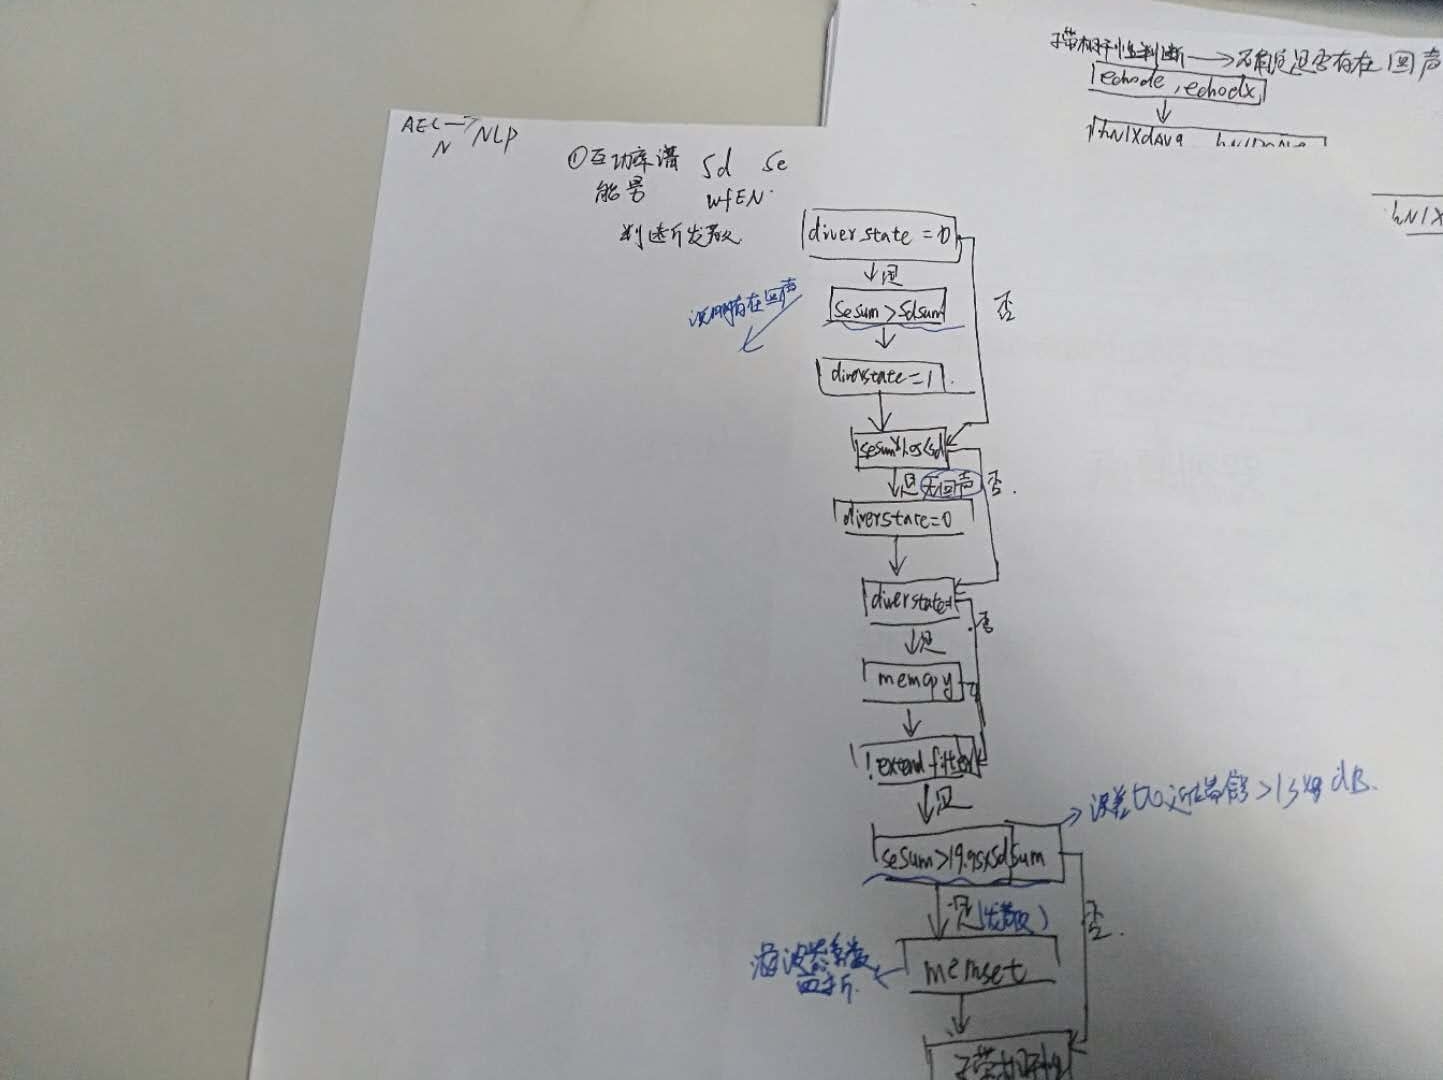 AEC → NLP
N
①互功率谱 Sd Se
能量 wfEN
判断发散
diverstate = 0
是
否
说明存在回声
sesum > sdsum
diverstate = 1
sesum*1.05<sd
是 无回声 否
diverstate=0
diverstate=1
否
是
memcpy
!extend filter
是
误差比近端信号>13 dB
sesum>19.95×sdsum
是(发散)
否
滤波器系数
memset
子带相干性
子带相干性判断 → 确定是否存在回声
echode, echodx
hNlXdAvg
hNlX